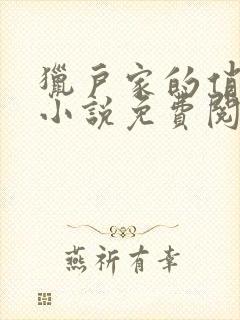 獵戶家的俏
小說免費閱
燕祈有幸